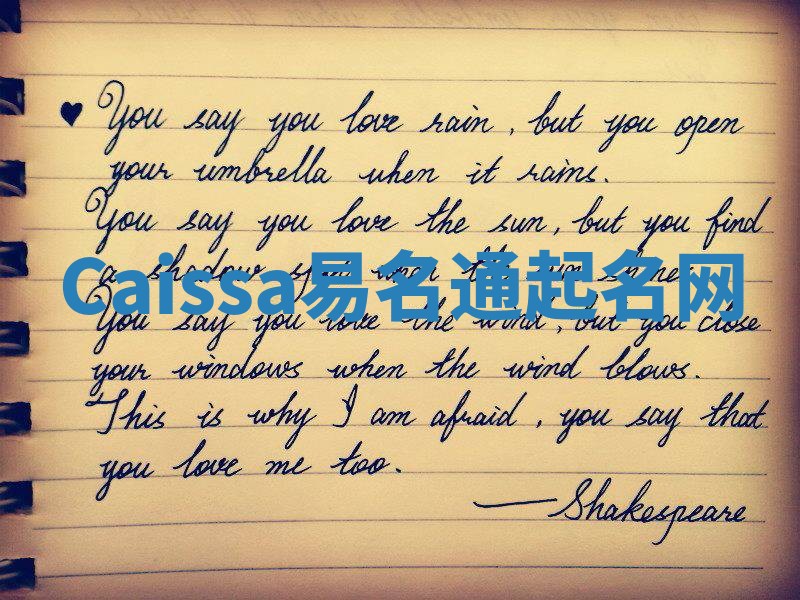 ♥ You say you love rain, but you open
your umbrella when it rains.
You say you love the sun, but you find
a shadow spot when the sun shines
Caissa易名通起名网
You say you love the wind, but you close
your windows when the wind blows.
This is why I am afraid, you say that
you love me too.
—Shakespeare